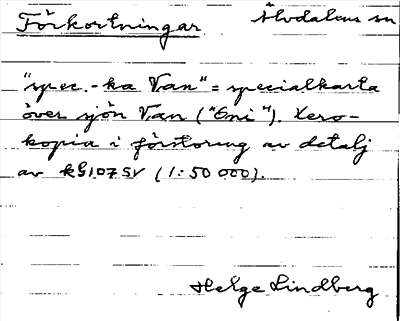 Förkortningar Älvdalens sn
"spec.-ka Van" = specialkarta
över sjön Van ("Oni"). Xero-
kopia i förstoring av detalj
av kg107SV (1:50 000).
Helge Lindberg